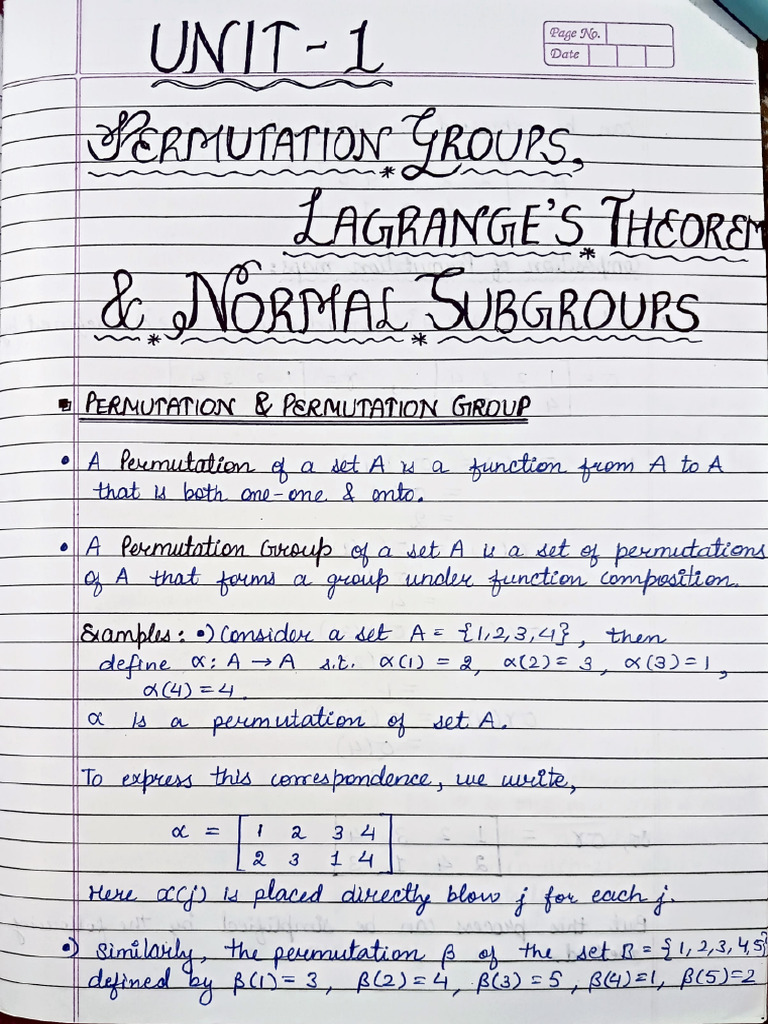 UNIT-1
Page No.
Date
PERMUTATION GROUPS,
LAGRANGE'S THEOREM
& NORMAL SUBGROUPS
PERMUTATION & PERMUTATION GROUP
• A Permutation of a set A is a function from A to A
that is both one-one & onto.
• A Permutation Group of a set A is a set of permutations
of A that forms a group under function composition.
Examples: •) Consider a set A = {1,2,3,4}, then
define α: A → A s.t. α(1) = 2, α(2) = 3, α(3) = 1,
α(4) = 4.
α is a permutation of set A.
To express this correspondence, we write,
α = [1 2 3 4
2 3 1 4]
Here α(j) is placed directly blow j for each j.
•) Similarly, the permutation β of the set B = {1,2,3,4,5}
defined by β(1) = 3, β(2) = 4, β(3) = 5, β(4) = 1, β(5) = 2